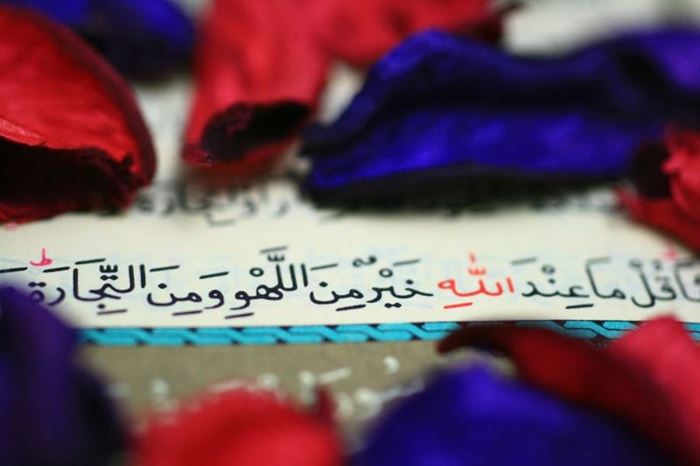 قُلْ مَا عِنْدَ اللّٰهِ خَيْرٌ مِنَ اللَّهْوِ وَمِنَ التِّجَارَةِ ؕ